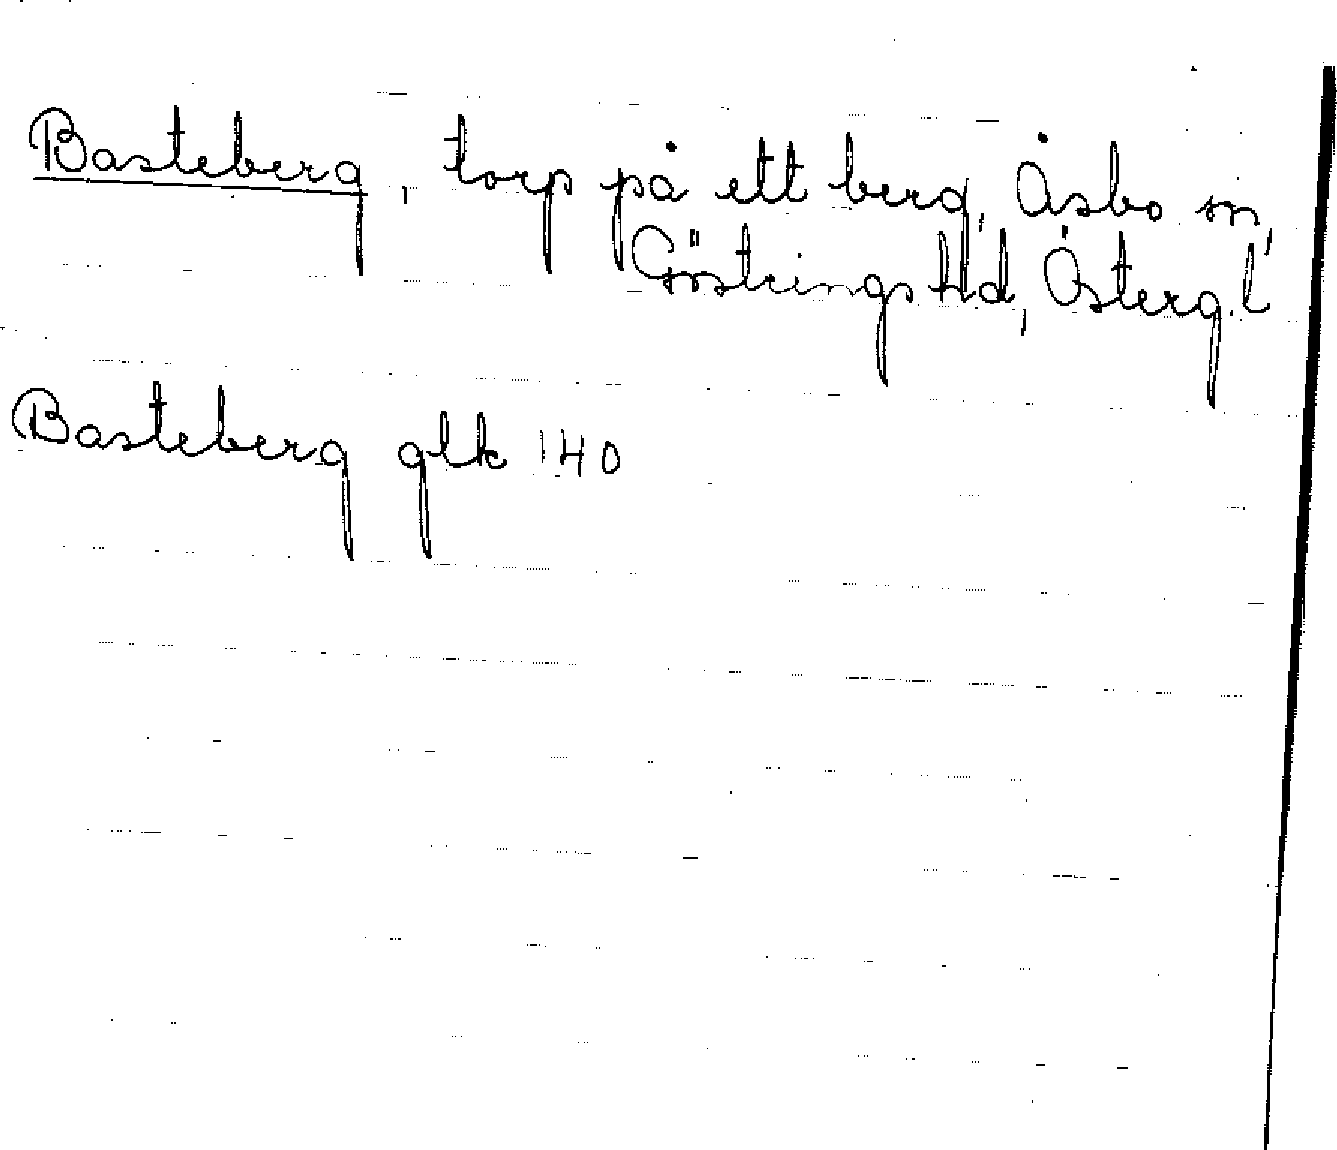 Basteberg, torp på ett berg, Åsbo sn,
Göstrings Hd, Österg.l
Basteberg glk 140